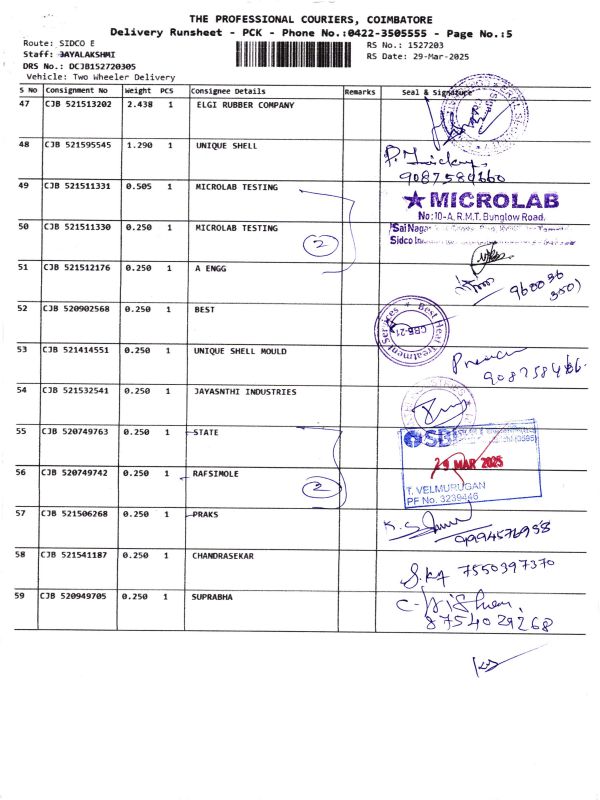 THE PROFESSIONAL COURIERS, COIMBATORE
Delivery Runsheet - PCK - Phone No.:0422-3505555 - Page No.:5
Route: SIDCO E RS No.: 1527203
Staff: JAYALAKSHMI RS Date: 29-Mar-2025
DRS No.: DCJB152720305
Vehicle: Two Wheeler Delivery
S No Consignment No Weight PCS Consignee Details Remarks Seal & Signature
47 CJB 521513202 2.438 1 ELGI RUBBER COMPANY
48 CJB 521595545 1.290 1 UNIQUE SHELL
9087584660
49 CJB 521511331 0.505 1 MICROLAB TESTING
MICROLAB
No:10-A, R.M.T. Bunglow Road.
50 CJB 521511330 0.250 1 MICROLAB TESTING
2
Sai Nagar
Sidco
51 CJB 521512176 0.250 1 A ENGG
52 CJB 520902568 0.250 1 BEST
Best Heat Treatment Services
CBE-21
53 CJB 521414551 0.250 1 UNIQUE SHELL MOULD
54 CJB 521532541 0.250 1 JAYASNTHI INDUSTRIES
55 CJB 520749763 0.250 1 STATE
SBI
29 MAR 2025
56 CJB 520749742 0.250 1 RAFSIMOLE
2
T. VELMURUGAN
PF No. 3239446
57 CJB 521506268 0.250 1 PRAKS
9994576958
58 CJB 521541187 0.250 1 CHANDRASEKAR
S.KA 7550397370
59 CJB 520949705 0.250 1 SUPRABHA
8754029268